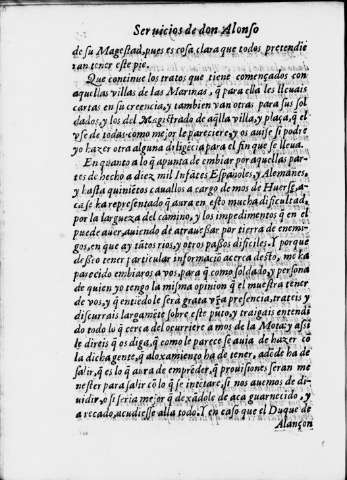 Seruicios de don Alonso
de su Magestad, pues es cosa clara que todos pretendiē
ran tener este pie.
Que continue los tratos que tiene començados con
aquellas villas de las Marinas, q̄ para ella les lleuais
cartas en su creencia, y tambien van otras para sus sol
dados, y los del Magistrado de aq̄lla villa, y plaça, q̄ el
vse de todas como mejor le pareciere, y os auise si podre
yo hazer otra alguna diligēcia para el fin que se lleua.
En quanto a lo q̄ apunta de embiar por aquellas par-
tes de hecho a diez mil Infātes Españoles, y Alemanes,
y hasta quiniētos cauallos a cargo de mos de Huerse, a-
ca se ha representado q̄ aura en esto mucha dificultad,
por la largueza del camino, y los impedimentos q̄ en el
puede auer, auiendo de atrauessar por tierra de enemi-
gos, en que ay tātos rios, y otros passos dificiles. Y porque
desseo tener particular informaciō acerca desto, me ha
parecido embiaros a vos, para q̄ como soldado, y persona
de quien yo tengo la misma opinion q̄ el muestra tener
de vos, y q̄ entiēdo le serà grata vr̄a presencia, trateis y
discurrais largamēte sobre este pūto, y traigais entendi
do todo lo q̄ cerca del ocurriere a mos de la Mota: y assi
le direis q̄ os diga, q̄ como le parece se auia de hazer cō
la dicha gente, q̄ aloxamiento ha de tener, adōde ha de
salir, q̄ es lo q̄ aura de emprēder, q̄ prouisiones seran me
nester para salir cō lo q̄ se intētare, si nos auemos de di-
uidir, o si seria mejor q̄ dexādole de aca guarnecido, y
a recado, acudiesse alla todo. Y en caso que el Duque de
Alançon